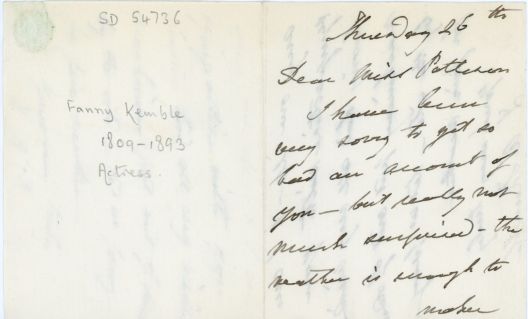 SD 54736
Fanny Kemble
1809-1893
Actress.
Thursday 26th
Dear Miss Patterson
I have been
very sorry to get so
bad an account of
you — but really not
much surprised — the
weather is enough to
make